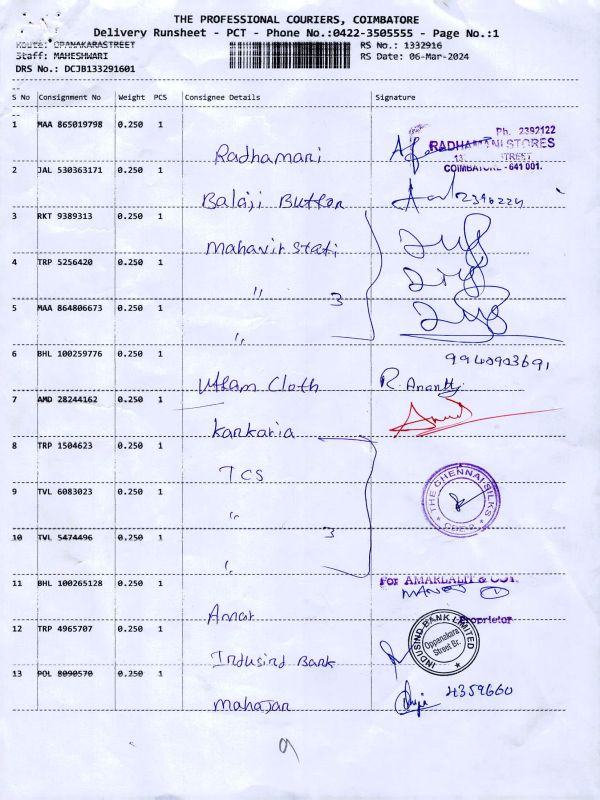 THE PROFESSIONAL COURIERS, COIMBATORE
Delivery Runsheet - PCT - Phone No.:0422-3505555 - Page No.:1
Route: OPANAKARASTREET RS No.: 1332916
Staff: MAHESHWARI RS Date: 06-Mar-2024
DRS No.: DCJB133291601
S No Consignment No Weight PCS Consignee Details Signature
1 MAA 865019798 0.250 1
Ph. 2392122
Radhamani RADHAMANI STORES
STREET
COIMBATORE - 641 001.
2 JAL 530363171 0.250 1
Balaji Button
3 RKT 9389313 0.250 1
Mahavir Stati
4 TRP 5256420 0.250 1
" 3
5 MAA 864806673 0.250 1
"
6 BHL 100259776 0.250 1 9940903691
Uttam Cloth R. Ananthi
7 AMD 28244162 0.250 1
Kankaria
8 TRP 1504623 0.250 1
TCS
9 TVL 6083023 0.250 1
" THE CHENNAI SILKS
10 TVL 5474496 0.250 1 3
"
11 BHL 100265128 0.250 1 For AMARLALIT & COY.
Amar
Proprietor
12 TRP 4965707 0.250 1
Indusind Bank INDUSIND BANK LIMITED
Oppanakara
Street Br.
13 POL 8090570 0.250 1
Mahajan 4359660